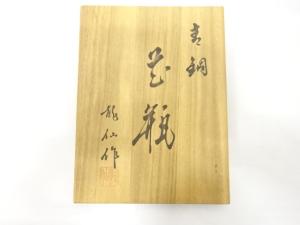 青銅
花瓶
龍仙作